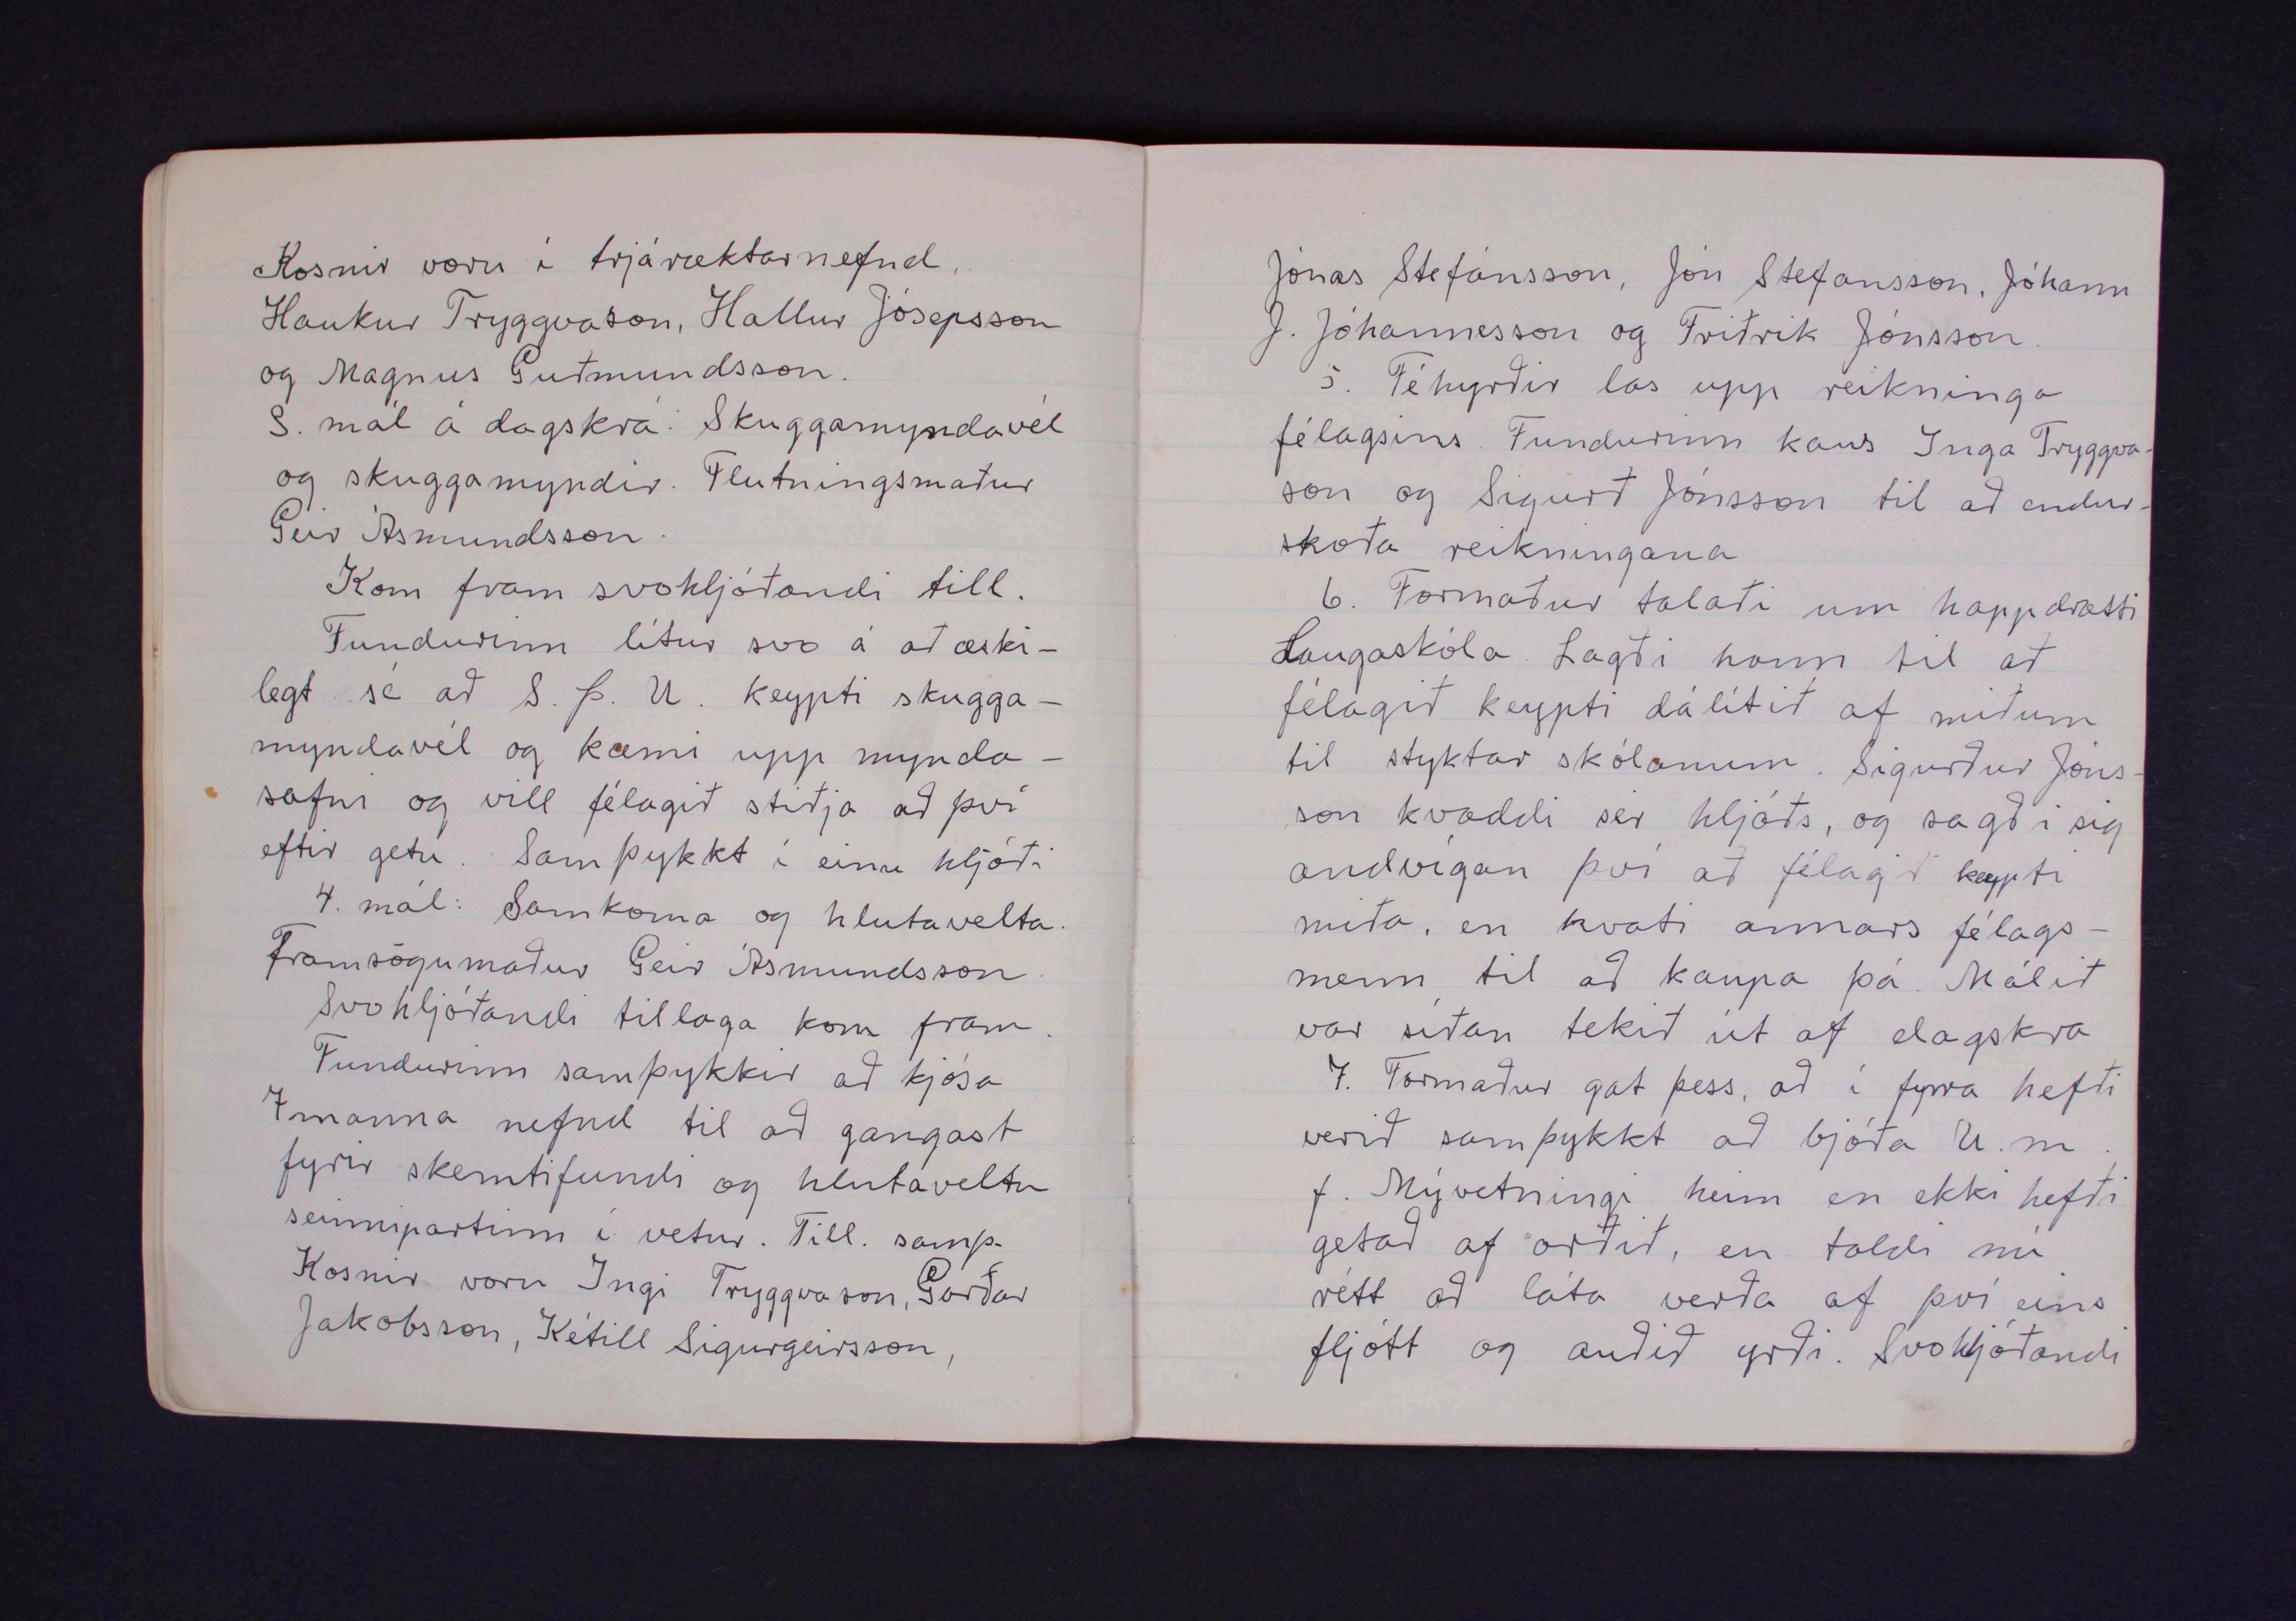 Kosnir voru í trjáræktarnefnd,
Haukur Tryggvason, Hallur Jósepsson
og Magnus Guðmundsson.
3. mál á dagskrá: Skuggamyndavél
og skuggamyndir. Flutningsmaður
Geir Ásmundsson.
Kom fram svohljóðandi till.
Fundurinn lítur svo á að æski-
legt sé að S. Þ. U. keypti skugga-
myndavél og kæmi upp mynda-
safni og vill félagið stiðja að því
eftir getu. Samþykkt í einu hljóði
4. mál: Samkoma og hlutavelta.
Framsögumaður Geir Ásmundsson
Svohljóðandi tillaga kom fram.
Fundurinn samþykkir að kjósa
7 manna nefnd til að gangast
fyrir skemtifundi og hlutaveltu
seinnipartinn í vetur. Till. samþ.
Kosnir voru Ingi Tryggvason, Garðar
Jakobsson, Ketill Sigurgeirsson,
Jónas Stefánsson, Jón Stefansson, Jóhann
J. Jóhannesson og Friðrik Jónsson.
5. Féhyrðir las upp reikninga
félagsins. Fundurinn kaus Inga Tryggva-
son og Sigurð Jónsson til að endur-
skoða reikningana
6. Formaður talaði um happdrætti
Laugaskóla. Lagði hann til að
félagið keypti dálítið af miðum
til styktar skólanum. Sigurður Jóns-
son kvaddi sér hljóðs, og sagði sig
andvígan því að félagið keypti
miða, en hvati annars félags-
menn til að kaupa þá. Málið
var síðan tekið út af dagskra
7. Formaður gat þess, að í fyrra hefði
verið samþykkt að bjóða U. m.
f. Mývetningi heim en ekki hefði
getað af orðið, en taldi nú
rétt að láta verða af því eins
fljótt og auðið yrði. Svohljóðandi